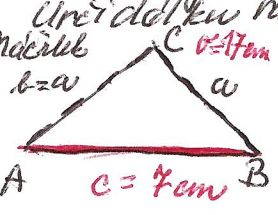 Urči délku
Náčrtek
C
o=17cm
b=a
a
A
B
c=7cm